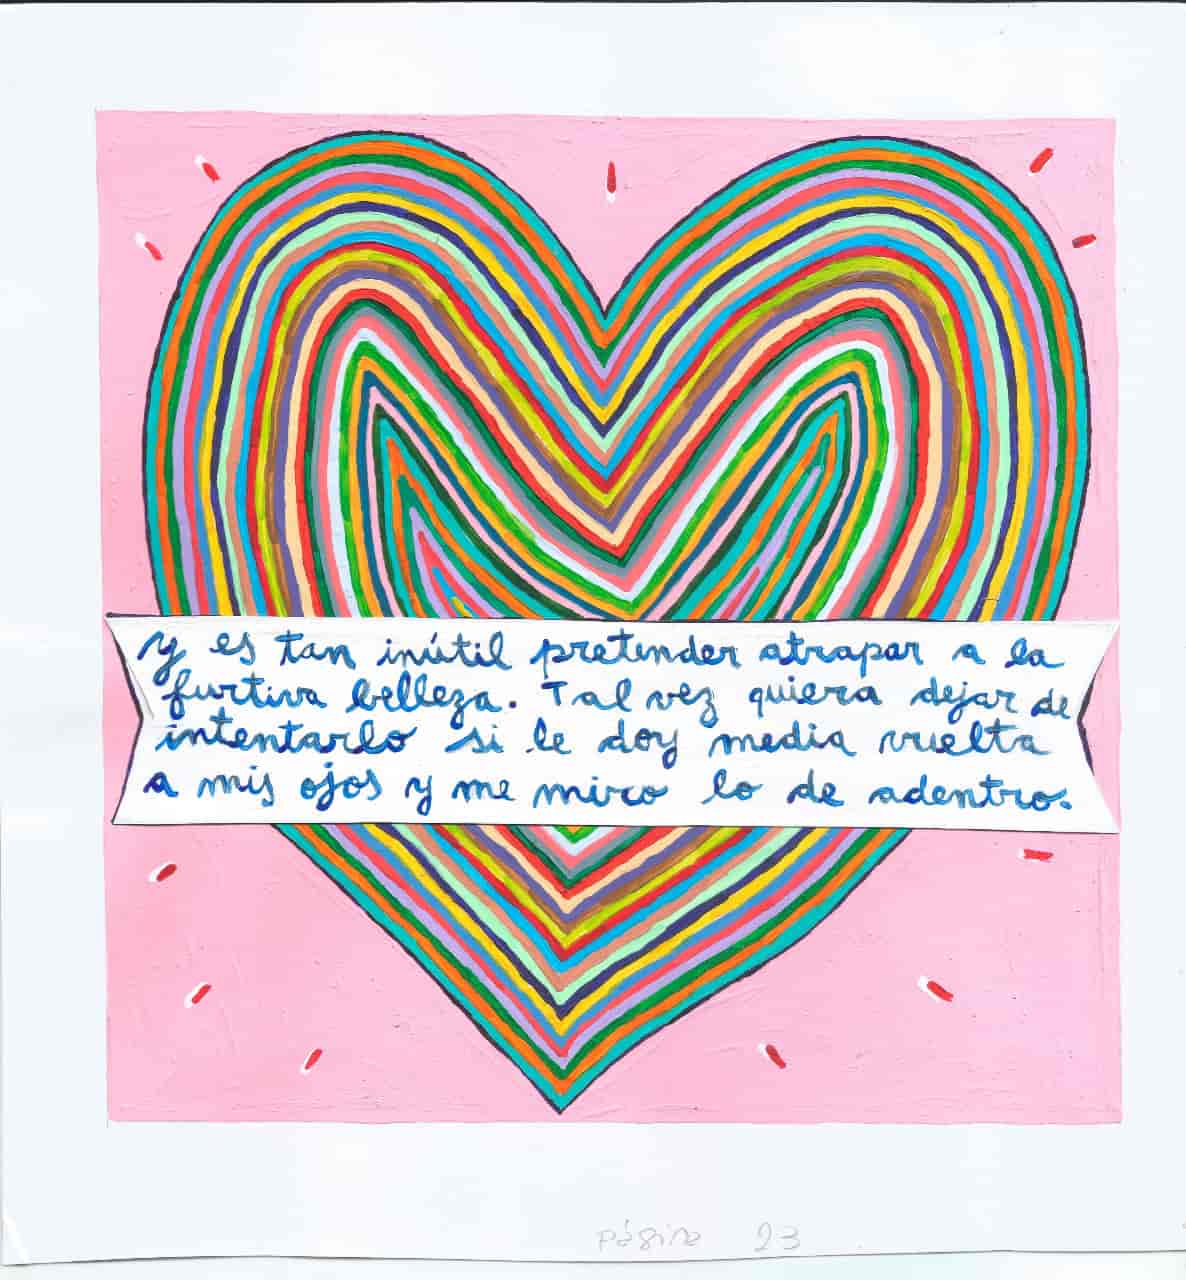 y es tan inútil pretender atrapar a la
furtiva belleza. Tal vez quiera dejar de
intentarlo si le doy media vuelta
a mis ojos y me miro lo de adentro.
página 23